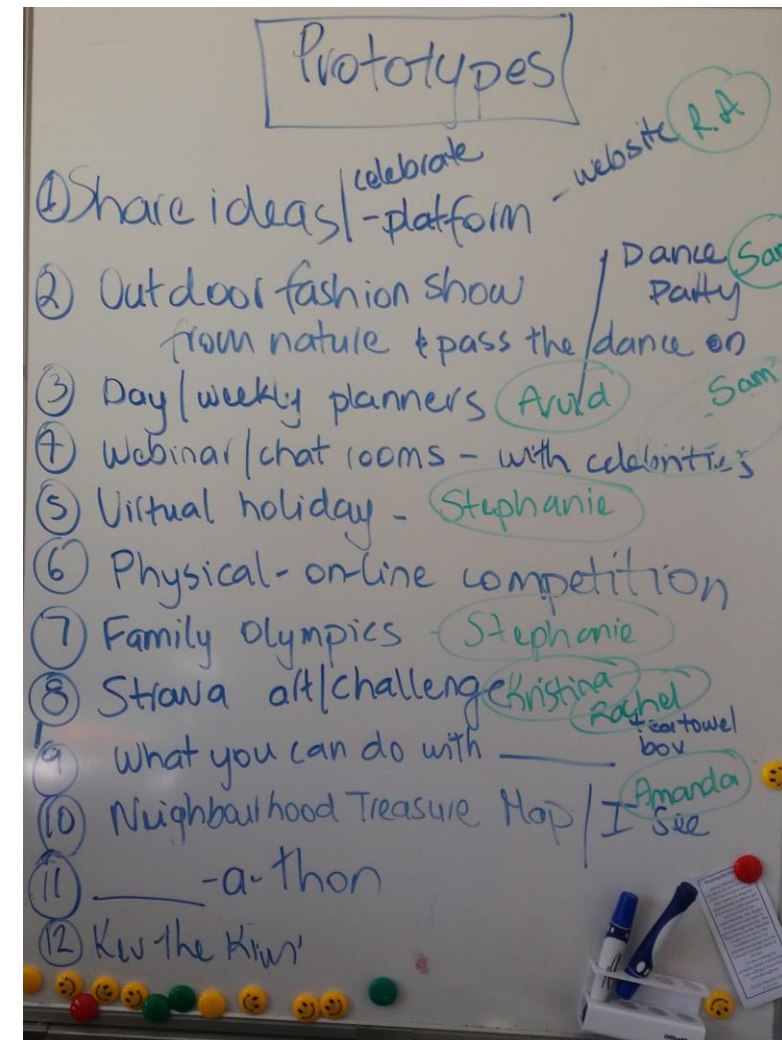 Prototypes
① Share ideas / celebrate - platform - website R.A
② Outdoor fashion show / Dance Party Sam
from nature & pass the dance on
③ Day / weekly planners Sam
④ Webinar / chat rooms - with celebrities
⑤ Virtual holiday - Stephanie
⑥ Physical - on-line competition
⑦ Family Olympics - Stephanie
⑧ Strava art / challenge Kristina Rachel
⑨ What you can do with ______ teatowel box
⑩ Neighbourhood Treasure Map / I See Amanda
⑪ ______-a-thon
⑫ the Kiwi